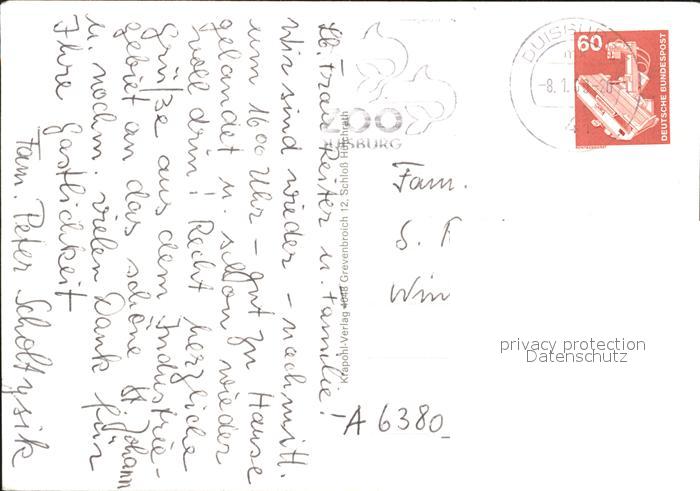 lb. Frau Reiter u. Familie!
Wir sind wieder - nachmitt.
um 16 00 Uhr - gut zu Hause
gelandet u. schon wieder
voll drin! Recht herzliche
Grüße aus dem Industrie-
gebiet an das schöne St. Johann
u. nochm. vielen Dank für
Ihre Gastlichkeit
Fam. Peter Scholtysik
ZOO
DUISBURG
Krapohl-Verlag 4048 Grevenbroich 12, Schloß Hülchrath
DUISBURG
-8.1.
60
DEUTSCHE BUNDESPOST
Fam.
S.
Win
privacy protection
Datenschutz
-A 6380